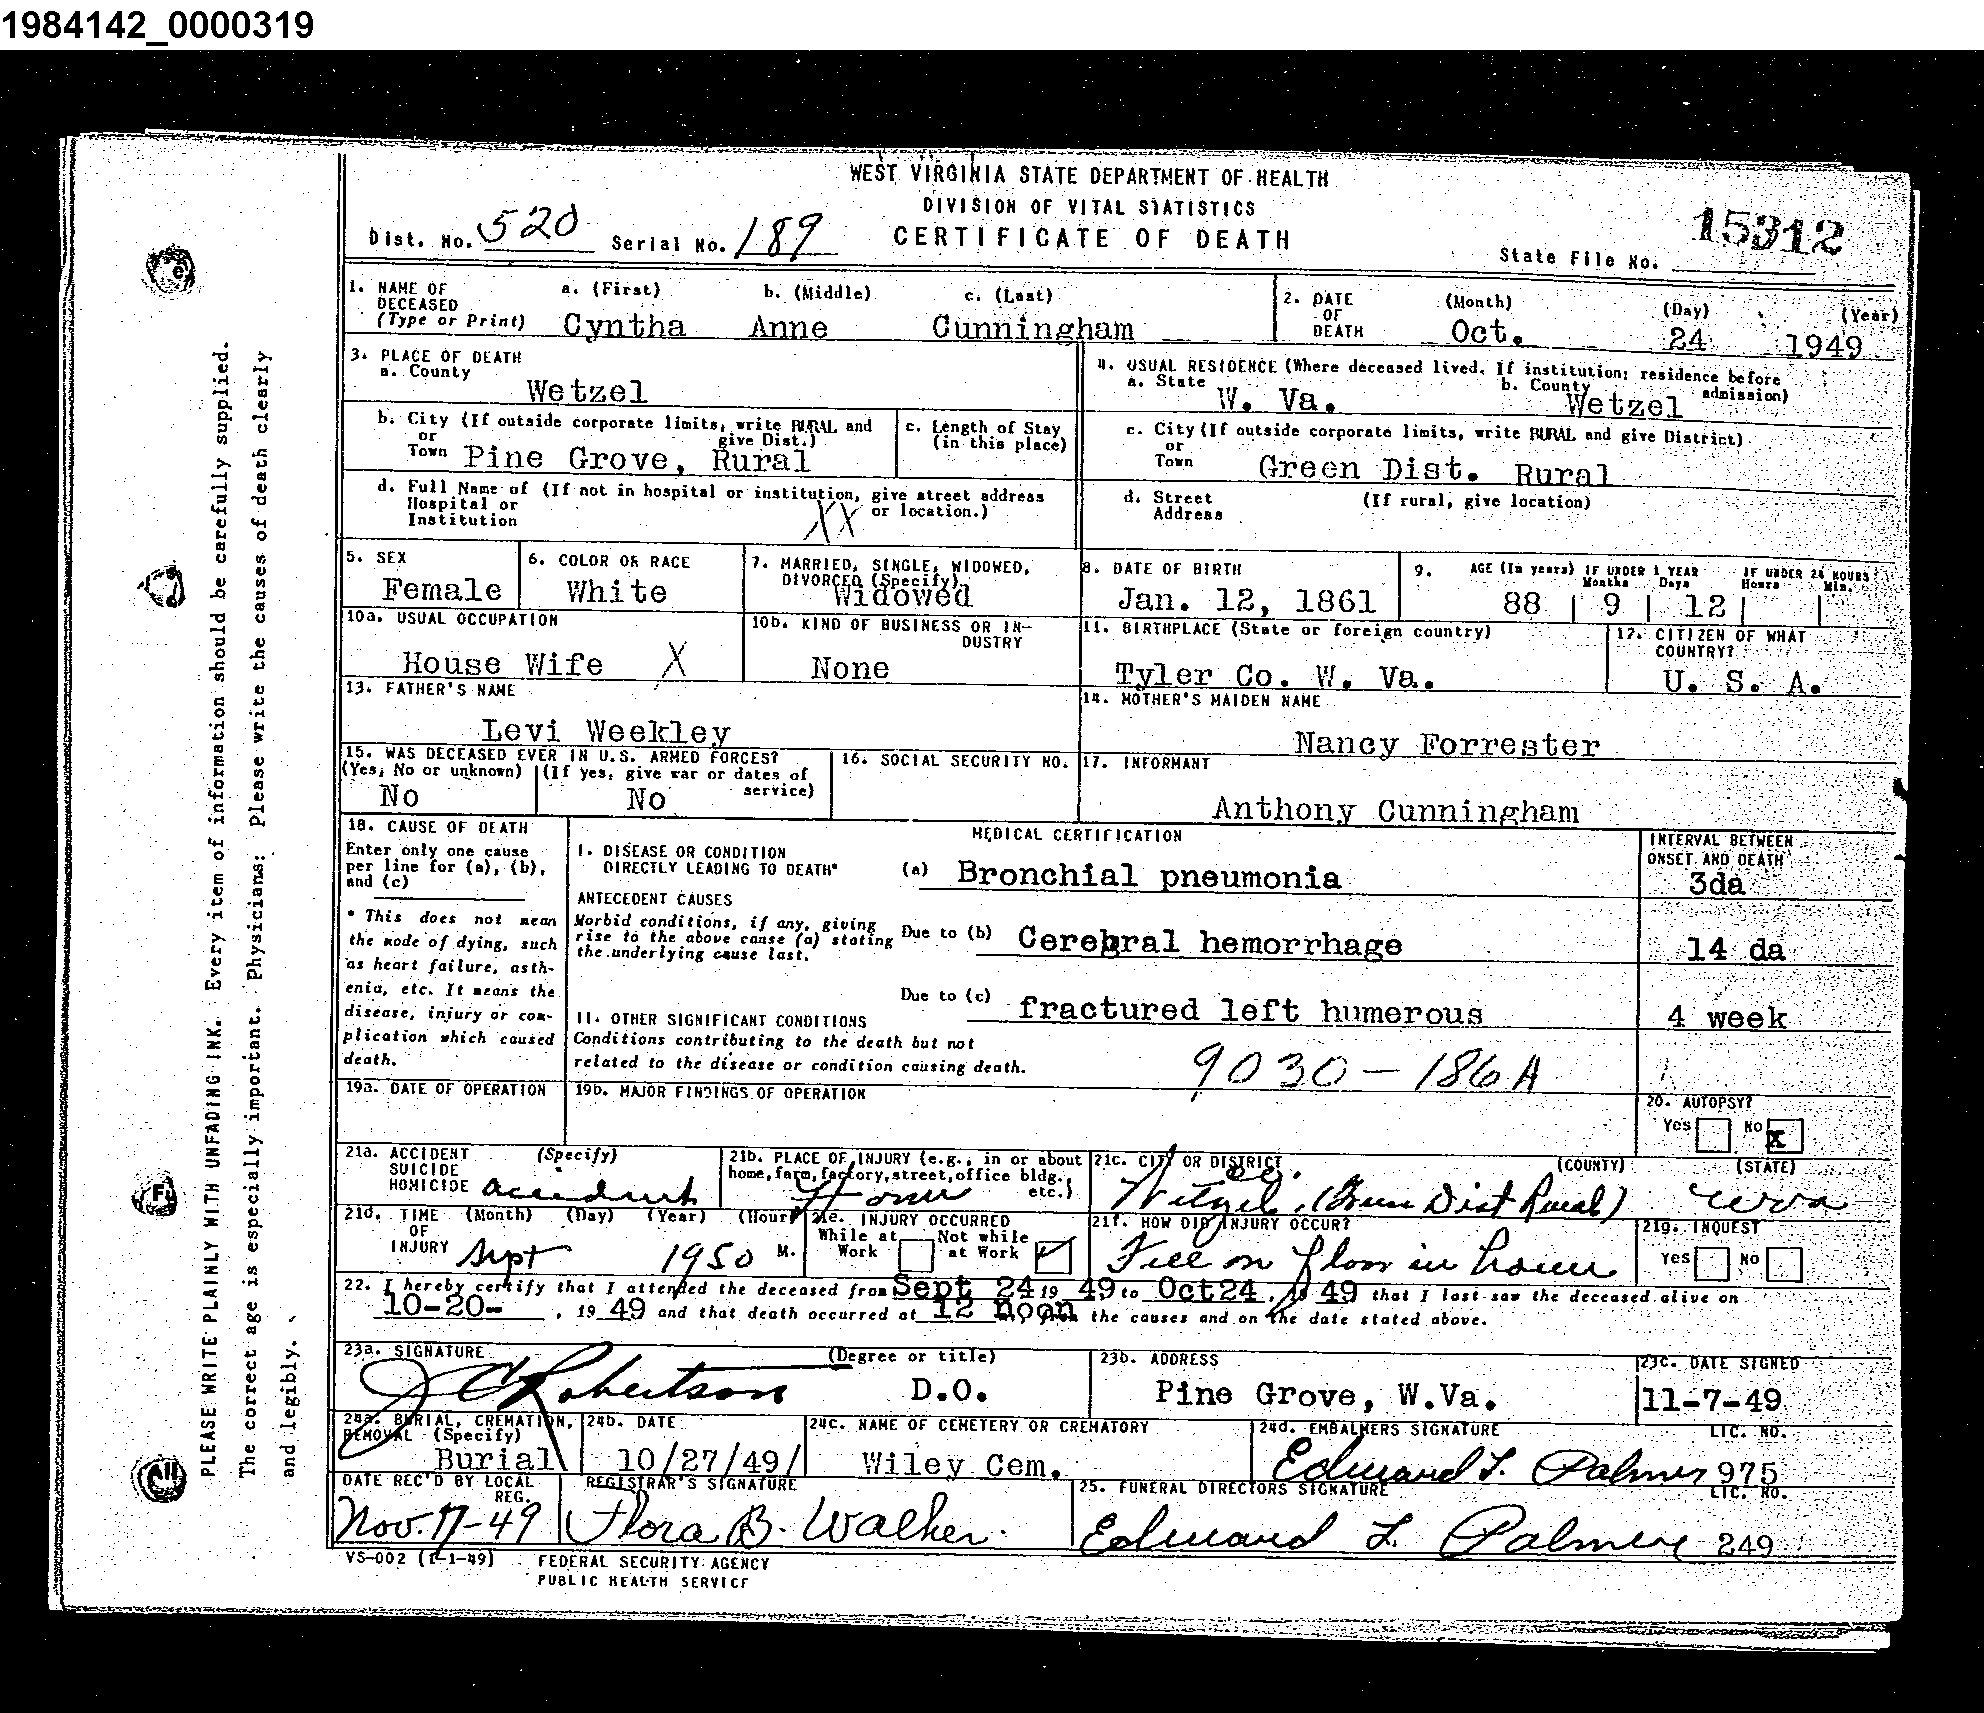 1984142_0000319
WEST VIRGINIA STATE DEPARTMENT OF HEALTH
DIVISION OF VITAL STATISTICS
CERTIFICATE OF DEATH
Dist. No. 520 Serial No. 189
State File No. 15312
1. NAME OF DECEASED (Type or Print) a. (First) b. (Middle) c. (Last)
Cyntha Anne Cunningham
2. DATE OF DEATH (Month) (Day) (Year)
Oct. 24 1949
3. PLACE OF DEATH
a. County
Wetzel
4. USUAL RESIDENCE (Where deceased lived. If institution: residence before admission)
a. State W. Va. b. County Wetzel
b. City (If outside corporate limits, write RURAL and give Dist.)
or Town Pine Grove, Rural
c. Length of Stay (in this place)
c. City (If outside corporate limits, write RURAL and give District)
or Town Green Dist. Rural
d. Full Name of (If not in hospital or institution, give street address or location.)
Hospital or Institution XX
d. Street Address (If rural, give location)
5. SEX
Female
6. COLOR OR RACE
White
7. MARRIED, SINGLE, WIDOWED, DIVORCED (Specify)
Widowed
8. DATE OF BIRTH
Jan. 12, 1861
9. AGE (In years) IF UNDER 1 YEAR Months Days IF UNDER 24 HOURS Hours Min.
88 9 12
10a. USUAL OCCUPATION
House Wife X
10b. KIND OF BUSINESS OR INDUSTRY
None
11. BIRTHPLACE (State or foreign country)
Tyler Co. W. Va.
12. CITIZEN OF WHAT COUNTRY?
U. S. A.
13. FATHER'S NAME
Levi Weekley
14. MOTHER'S MAIDEN NAME
Nancy Forrester
15. WAS DECEASED EVER IN U.S. ARMED FORCES?
(Yes, No or unknown) (If yes, give war or dates of service)
No No
16. SOCIAL SECURITY NO.
17. INFORMANT
Anthony Cunningham
18. CAUSE OF DEATH
Enter only one cause per line for (a), (b), and (c)
* This does not mean the mode of dying, such as heart failure, asthenia, etc. It means the disease, injury or complication which caused death.
MEDICAL CERTIFICATION
INTERVAL BETWEEN ONSET AND DEATH
I. DISEASE OR CONDITION DIRECTLY LEADING TO DEATH*
(a) Bronchial pneumonia 3da
ANTECEDENT CAUSES
Morbid conditions, if any, giving rise to the above cause (a) stating the underlying cause last.
Due to (b) Cerebral hemorrhage 14 da
Due to (c) fractured left humerous 4 week
II. OTHER SIGNIFICANT CONDITIONS
Conditions contributing to the death but not related to the disease or condition causing death.
9030-186A
19a. DATE OF OPERATION
19b. MAJOR FINDINGS OF OPERATION
20. AUTOPSY?
Yes No X
21a. ACCIDENT SUICIDE HOMICIDE (Specify)
accident
21b. PLACE OF INJURY (e.g., in or about home, farm, factory, street, office bldg., etc.)
Home
21c. CITY OR DISTRICT (COUNTY) (STATE)
Wetzel Co. (Green Dist Rural) W Va
21d. TIME OF INJURY (Month) (Day) (Year) (Hour)
Sept 1950 M.
21e. INJURY OCCURRED
While at Work Not while at Work ✓
21f. HOW DID INJURY OCCUR?
Fell on floor in home
21g. INQUEST
Yes No
22. I hereby certify that I attended the deceased from Sept 24 19 49 to Oct 24, 19 49 that I last saw the deceased alive on
10-20-, 19 49 and that death occurred at 12 noon the causes and on the date stated above.
23a. SIGNATURE (Degree or title)
J C Robertson D.O.
23b. ADDRESS
Pine Grove, W.Va.
23c. DATE SIGNED
11-7-49
24a. BURIAL, CREMATION, REMOVAL (Specify)
Burial
24b. DATE
10/27/49/
24c. NAME OF CEMETERY OR CREMATORY
Wiley Cem.
24d. EMBALMERS SIGNATURE LIC. NO.
Edward L. Palmer 975
DATE REC'D BY LOCAL REG.
Nov. 17-49
REGISTRAR'S SIGNATURE
Flora B. Walker.
25. FUNERAL DIRECTORS SIGNATURE LIC. NO.
Edward L. Palmer 249
VS-002 (1-1-49) FEDERAL SECURITY AGENCY
PUBLIC HEALTH SERVICE
PLEASE WRITE PLAINLY WITH UNFADING INK. Every item of information should be carefully supplied.
The correct age is especially important. Physicians: Please write the causes of death clearly
and legibly.